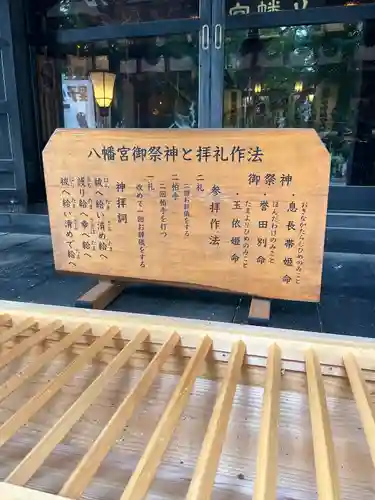 八幡宮御祭神と拝礼作法
御祭神
・息長帯姫命
おきながたらしひめのみこと
・誉田別命
ほんだわけのみこと
・玉依姫命
たまよりひめのみこと
参拝作法
二礼
二回お辞儀をする
二拍手
二回拍手を打つ
一礼
改めて一回お辞儀をする
神拝詞
祓へ給い
清め給へ
護り給へ
幸へ給へ
祓へ給い
清め給へ